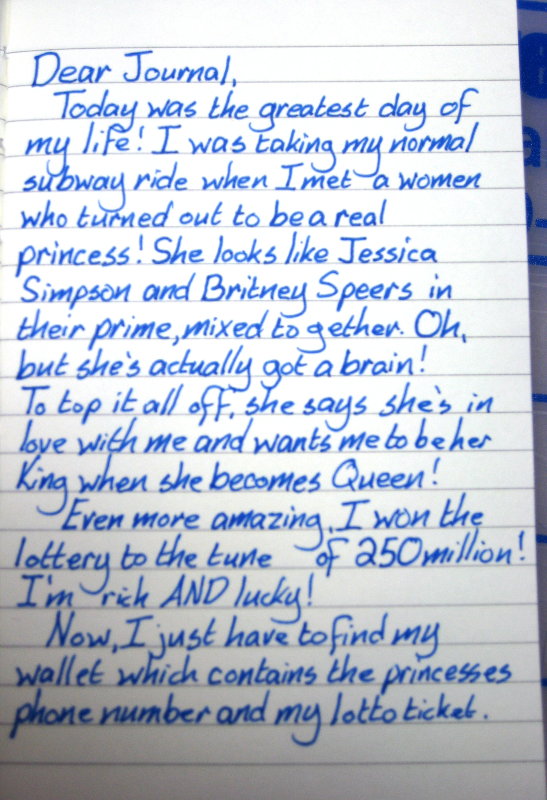 Dear Journal,
Today was the greatest day of
my life! I was taking my normal
subway ride when I met a women
who turned out to be a real
princess! She looks like Jessica
Simpson and Britney Speers in
their prime, mixed to gether. Oh,
but she's actually got a brain!
To top it all off, she says she's in
love with me and wants me to be her
King when she becomes Queen!
Even more amazing, I won the
lottery to the tune of 250 million!
I'm rich AND lucky!
Now, I just have to find my
wallet which contains the princesses
phone number and my lotto ticket.